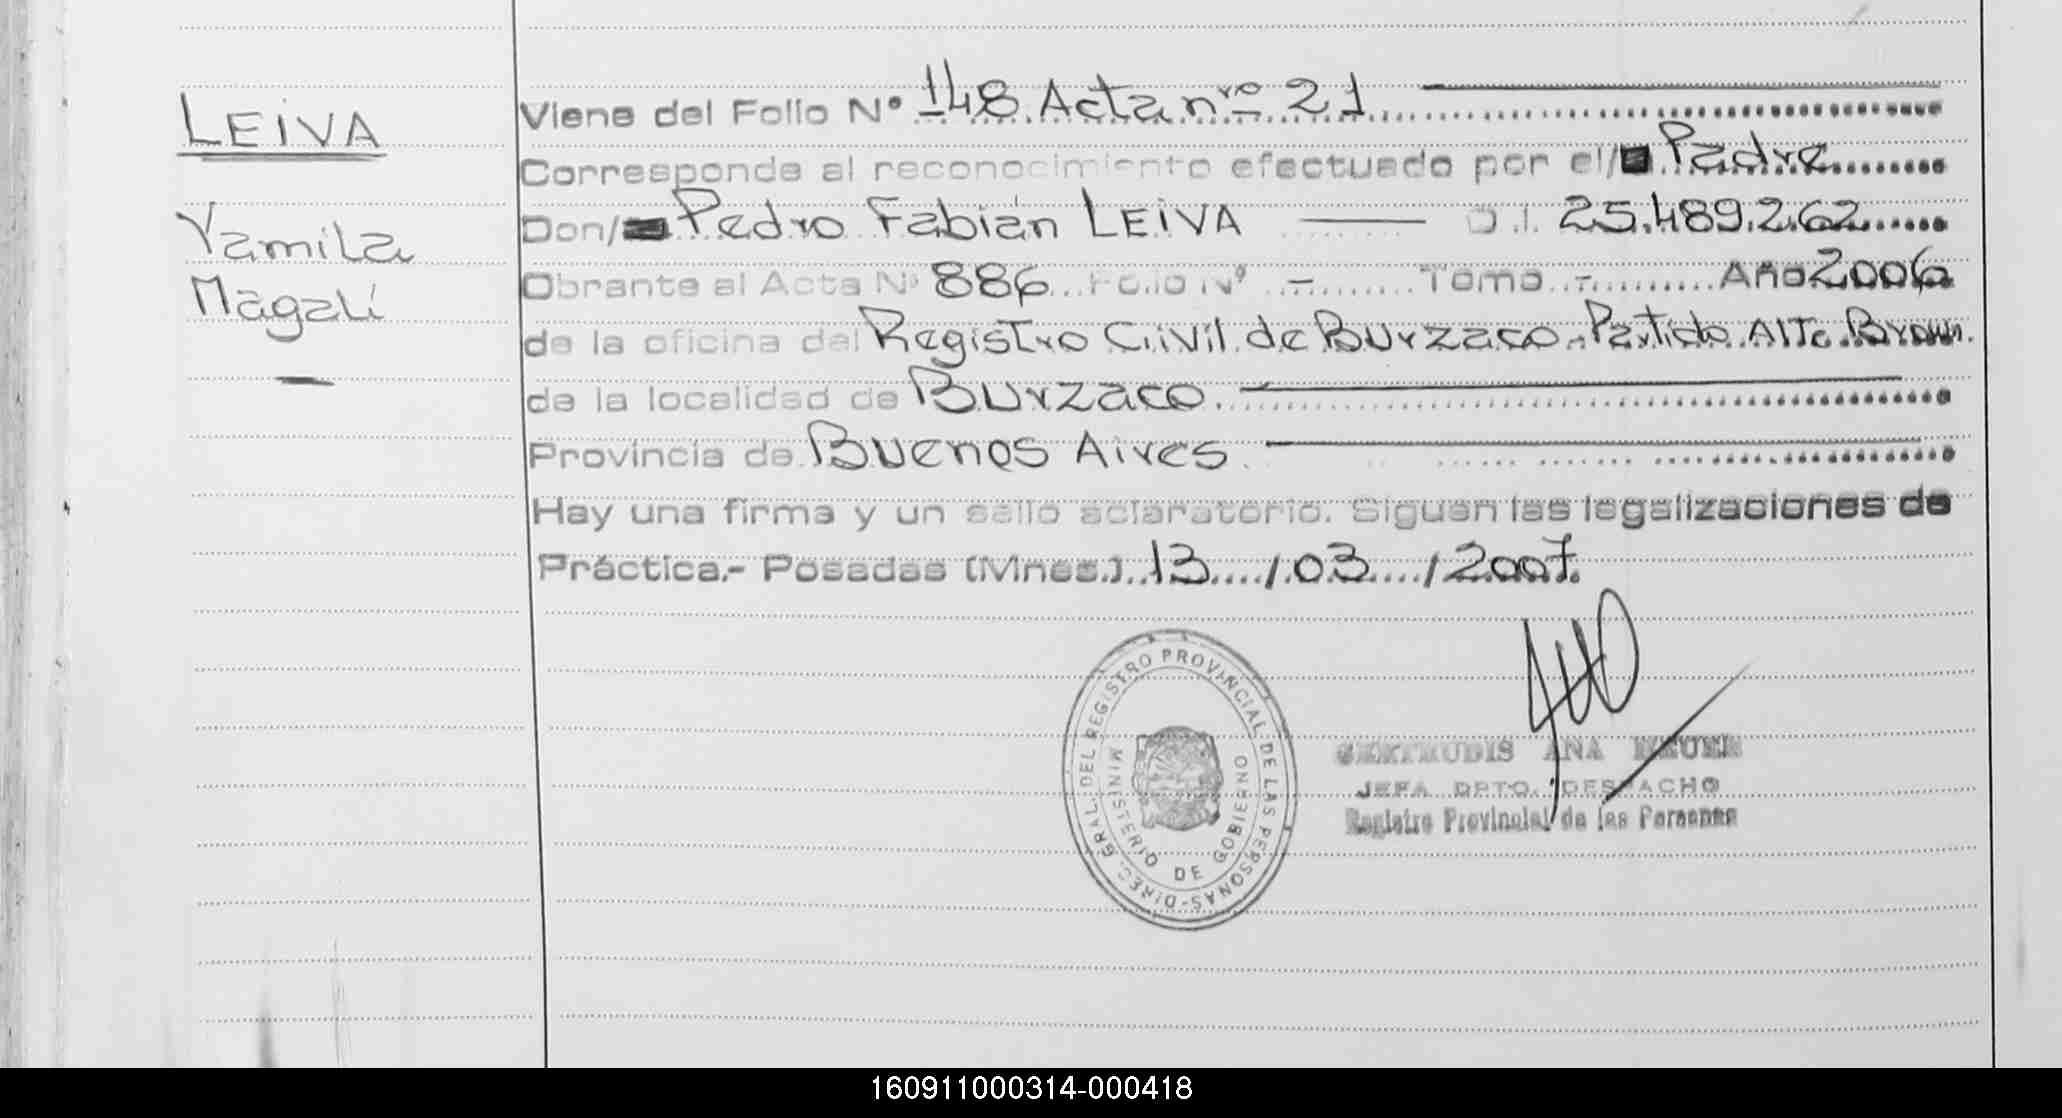 LEIVA
Yamila
Magalí
Viene del Folio N° 148 Acta nro 21
Corresponde al reconocimiento efectuado por el/ Padre
Don/ Pedro Fabián LEIVA D.I. 25.489.262
Obrante al Acta N° 886 Folio N° - Tomo - Año 2006
de la oficina del Registro Civil de Burzaco - Partido Alte. Brown.
de la localidad de Burzaco.
Provincia de Buenos Aires.
Hay una firma y un sello aclaratorio. Siguen las legalizaciones de
Práctica.- Posadas (Mnes.) 13 / 03 / 2007.
DIREC. GRAL. DEL REGISTRO PROVINCIAL DE LAS PERSONAS-
MINISTERIO DE GOBIERNO
GERTRUDIS ANA
JEFA DPTO. DESPACHO
Registro Provincial de las Personas
160911000314-000418